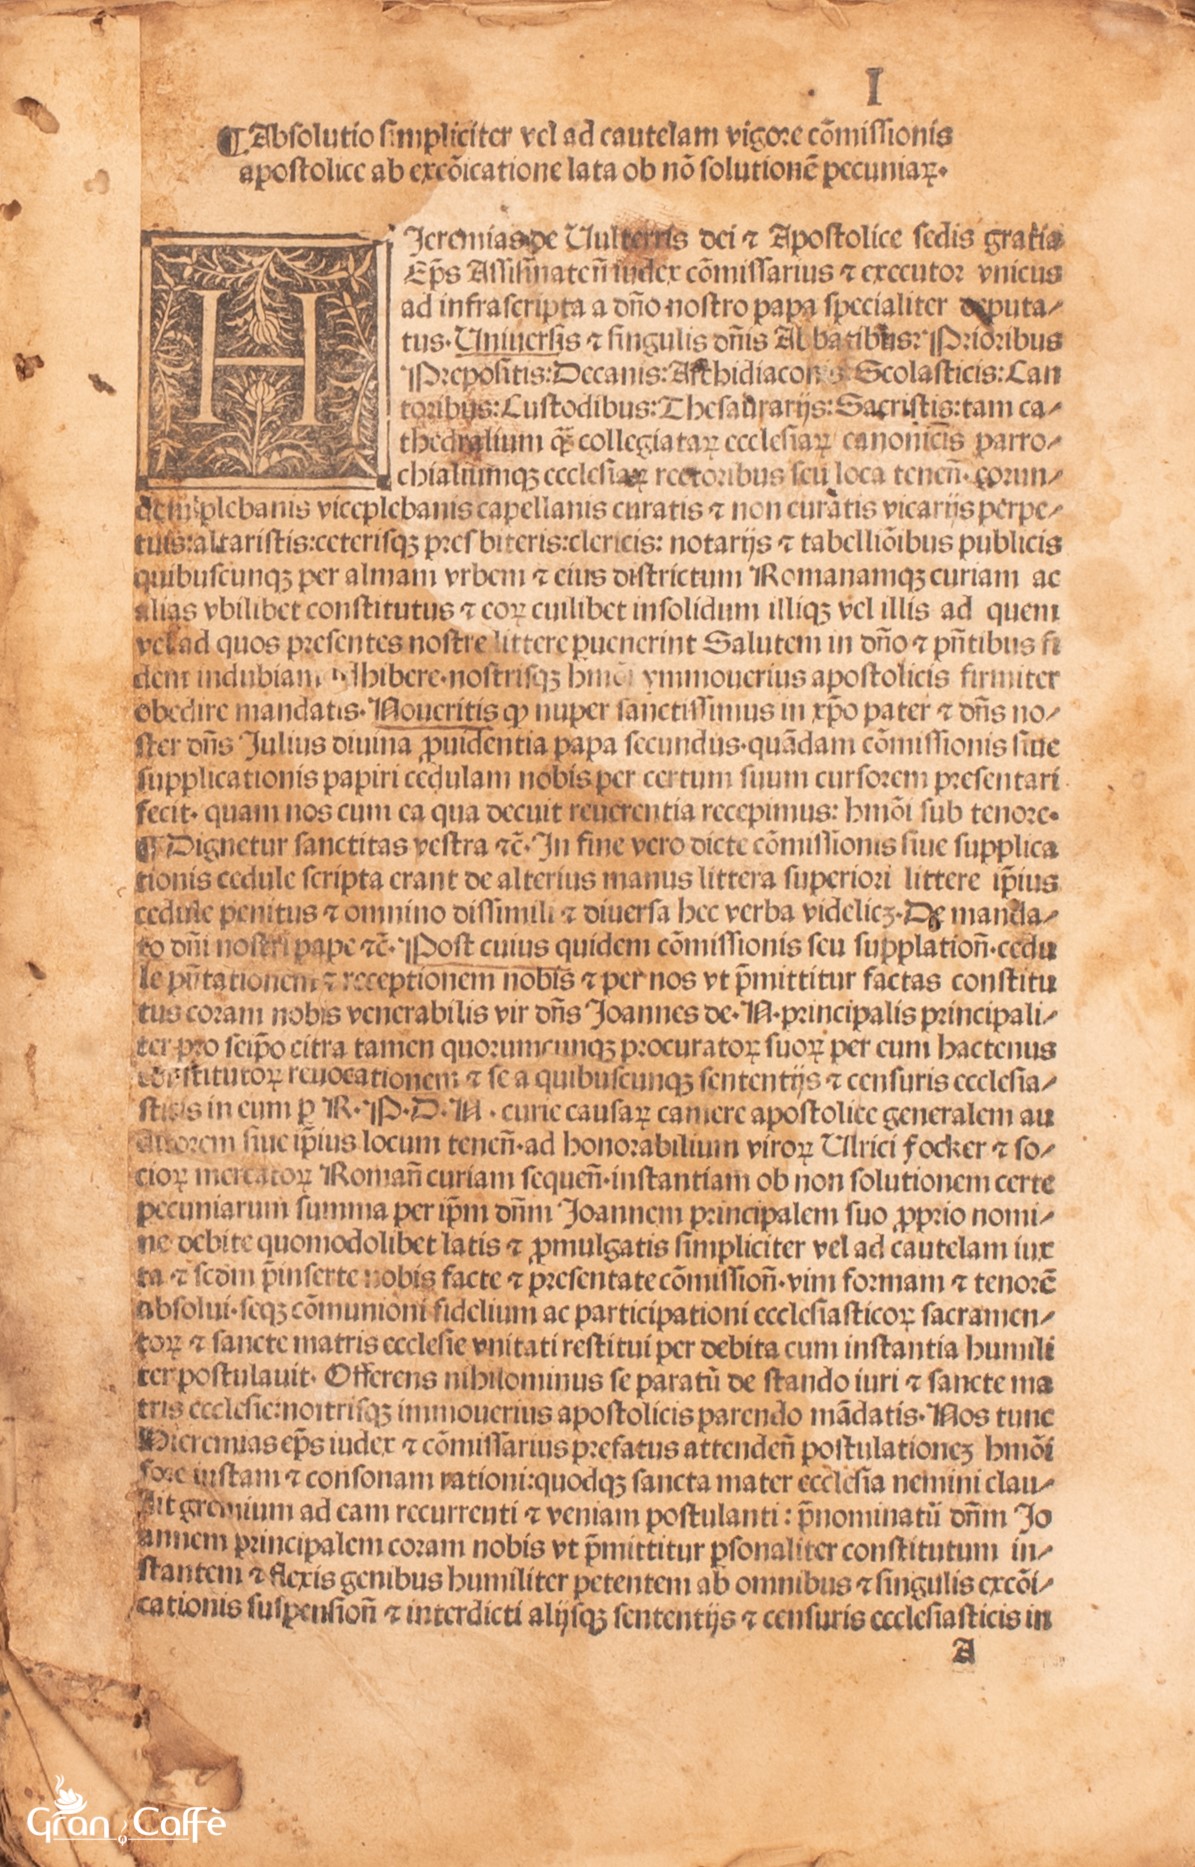 I
¶Absolutio simpliciter vel ad cautelam vigore cōmissionis
apostolice ab excōicatione lata ob nō solutionē pecuniaꝝ.
HJeremias de Uulterris dei ⁊ Apostolice sedis gratia
Ep̄s Assisinateñ iudex cōmissarius ⁊ executor vnicus
ad infrascripta a dño nostro papa specialiter deputa⸗
tus. Uniuersis ⁊ singulis dñis Abbatibus: Prioribus
Prepositis: Decanis: Archidiaconis: Scolasticis: Can
toribus: Custodibus: Thesaurarijs: Sacristis: tam ca⸗
thedralium q̄ꝫ collegiataꝝ ecclesiaꝝ canonicis parro⸗
chialiumqꝫ ecclesiaꝝ rectoribus seu loca teneñ. eorun⸗
dem plebanis viceplebanis capellanis curatis ⁊ non curatis vicarijs perpe⸗
tuis: altaristis: ceterisqꝫ presbiteris: clericis: notarijs ⁊ tabelliōibus publicis
quibuscunqꝫ per almam vrbem ⁊ eius districtum Romanamqꝫ curiam ac
alias vbilibet constitutus ⁊ eoꝝ cuilibet insolidum illiqꝫ vel illis ad quem
vel ad quos presentes nostre littere ꝑuenerint Salutem in dño ⁊ pñtibus fi
dem indubiam adhibere. nostrisqꝫ hmōi ymmouerius apostolicis firmiter
obedire mandatis. Noueritis ꝙ nuper sanctissimus in xp̄o pater ⁊ dñs no⸗
ster dñs Julius diuina ꝓuidentia papa secundus. quādam cōmissionis siue
supplicationis papiri cedulam nobis per certum suum cursorem presentari
fecit. quam nos cum ea qua decuit reuerentia recepimus: hmōi sub tenore.
¶Dignetur sanctitas vestra ⁊c̄. In fine vero dicte cōmissionis siue supplica
tionis cedule scripta erant de alterius manus littera superiori littere ip̄ius
cedule penitus ⁊ omnino dissimili ⁊ diuersa hec verba videlicꝫ. De manda⸗
to dñi nostri pape ⁊c̄. Post cuius quidem cōmissionis seu supplatioñ. cedu
le pñtationem ⁊ receptionem nobis ⁊ per nos vt p̄mittitur factas constitu
tus coram nobis venerabilis vir dñs Joannes de. N. principalis principali⸗
ter pro seip̄o citra tamen quorumcunqꝫ procuratoꝝ suoꝝ per eum hactenus
constitutoꝝ reuocationem ⁊ se a quibuscunqꝫ sententijs ⁊ censuris ecclesia⸗
sticis in eum ꝑ R. P. D. N. curie causaꝝ camere apostolice generalem au
ditorem siue ip̄ius locum teneñ. ad honorabilium viroꝝ Ulrici focker ⁊ so⸗
cioꝝ mercatoꝝ Romañ curiam sequeñ. instantiam ob non solutionem certe
pecuniarum summa per ip̄m dñm Joannem principalem suo ꝓprio nomi⸗
ne debite quomodolibet latis ⁊ ꝓmulgatis simpliciter vel ad cautelam iux
ta ⁊ scdm p̄inserte nobis facte ⁊ presentate cōmissioñ. vim formam ⁊ tenorē
absolui. seqꝫ cōmunioni fidelium ac participationi ecclesiasticoꝝ sacramen⸗
toꝝ ⁊ sancte matris ecclesie vnitati restitui per debita cum instantia humili
ter postulauit. Offerens nihilominus se paratū de stando iuri ⁊ sancte ma
tris ecclesie: nostrisqꝫ immouerius apostolicis parendo mādatis. Nos tunc
Hieremias ep̄s iudex ⁊ cōmissarius prefatus attendeñ postulationeꝫ hmōi
fore iustam ⁊ consonam rationi: quodqꝫ sancta mater ecclesia nemini clau⸗
dit gremium ad eam recurrenti ⁊ veniam postulanti: p̄nominatū dñm Jo
annem principalem coram nobis vt p̄mittitur ꝑsonaliter constitutum in⸗
stantem ⁊ flexis genibus humiliter petentem ab omnibus ⁊ singulis excōi⸗
cationis suspensioñ ⁊ interdicti alijsqꝫ sententijs ⁊ censuris ecclesiasticis in
A
Gran Caffè